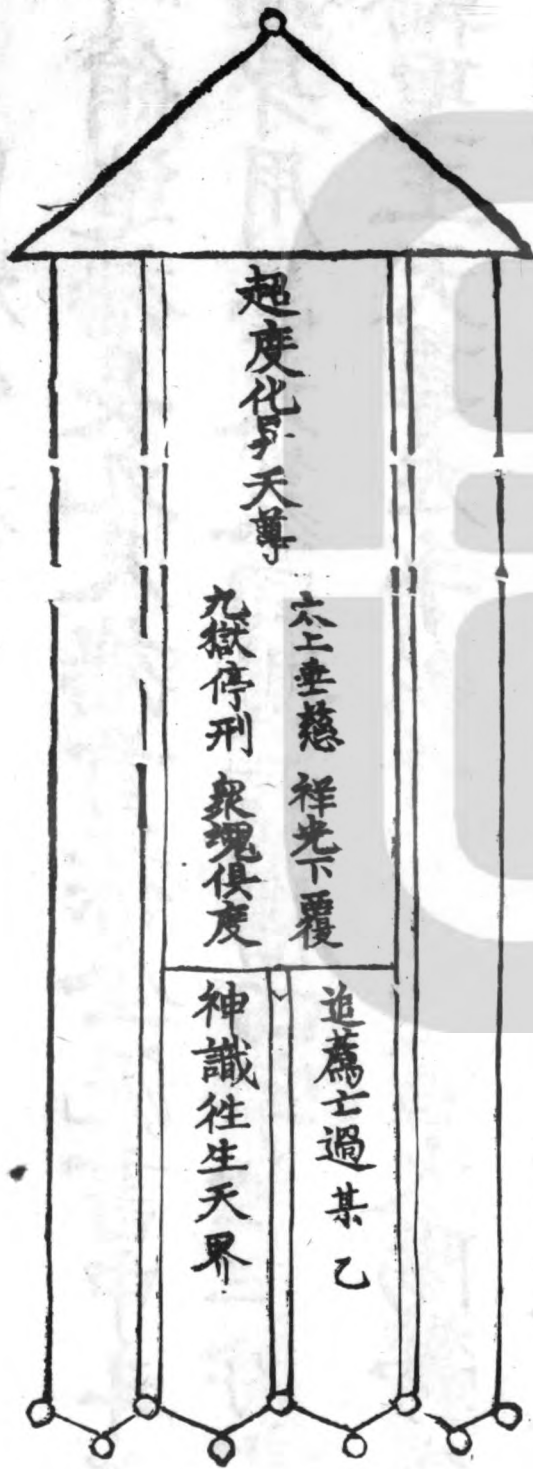 超度化昇天尊
太上垂慈 祥光下覆
九獄停刑 衆魂俱度
追薦亡過某乙
神識徃生天界